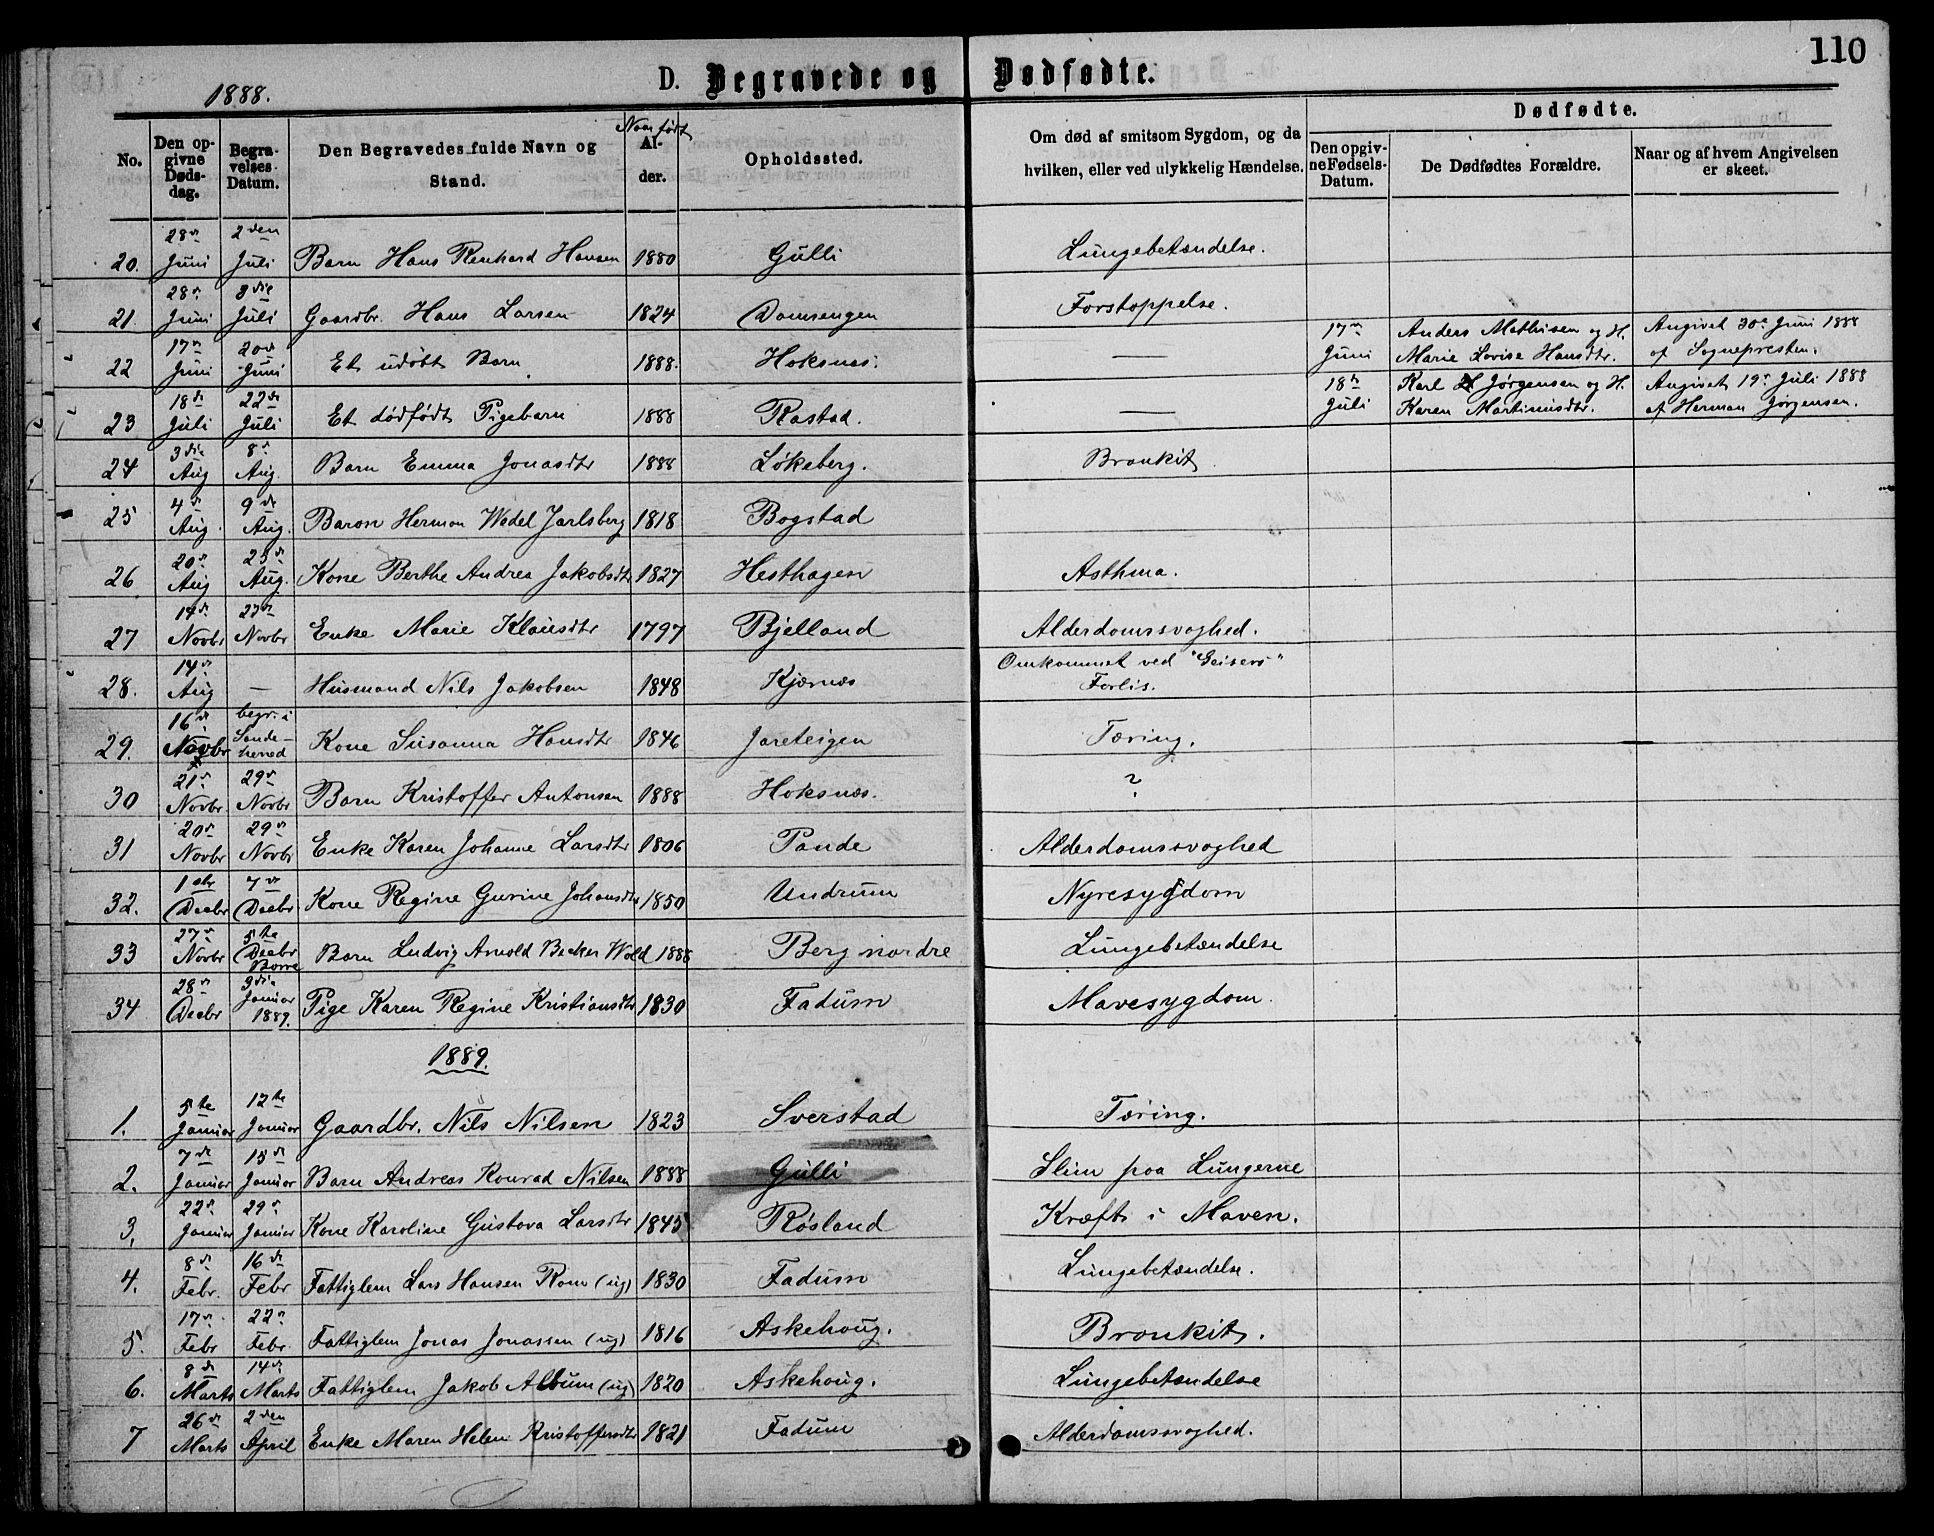 110
D. Begravede og Dødfødte.
1888.
No. | Den opgivne Dødsdag. | Begravelses Datum. | Den Begravedes fulde Navn og Stand. | Naar født Alder. | Opholdssted. | Om død af smitsom Sygdom, og da hvilken, eller ved ulykkelig Hændelse. | Dødfødte. Den opgivne Fødsels-Datum. | De Dødfødtes Forældre. | Naar og af hvem Angivelsen er skeet.
20. | 28de Juni | 2den Juli | Barn Hans Renhard Hansen | 1880 | Gulli | Lungebetændelse.
21. | 28de Juni | 3die Juli | Gaardbr. Hans Larsen | 1824 | Damsengen | Forstoppelse.
22 | 17de Juni | 20de Juni | Et udøbt Barn | 1888. | Hoksnæs. | — | 17de Juni | Anders Mathisen og H. Marie Lovise Hansdtr. | Angivet 30te Juni 1888 af Sognepresten.
23 | 18de Juli | 22de Juli | Et dødfødt Pigebarn | 1888 | Rastad. | — | 18de Juli | Karl Jørgensen og H. Karen Martinusdtr. | Angivet 19de Juli 1888 af Herman Jørgensen.
24 | 3die Aug | 8de Aug. | Barn Emma Jonasdtr | 1888 | Løkeberg. | Bronkit
25 | 4de Aug. | 9de Aug. | Baron Herman Wedel Jarlsberg | 1818 | Bogstad
26 | 20de Aug | 25de Aug. | Kone Berthe Andrea Jakobsdtr | 1827 | Hesthagen | Asthma.
27 | 14de Novbr | 22de Novbr | Enke Marie Klausdtr | 1797 | Bjelland | Alderdomssvaghed.
28. | 14de Aug | — | Husmand Nils Jakobsen | 1848 | Kjærnæs | Omkommet ved "Geisers" Forlis.
29. | 16de Novbr | begr. i Sandeherred | Kone Susanna Hansdtr | 1846 | Jareteigen | Tæring.
30 | 21de Novbr | 29de Novbr | Barn Kristoffer Antonsen | 1888 | Hoksnæs. | ?
31 | 20de Novbr | 29de Novbr | Enke Karen Johanne Larsdtr | 1806 | Pande | Alderdomssvaghed
32. | 1ste Decbr | 7de Decbr | Kone Regine Gurine Johansdtr | 1850 | Undrum | Nyresygdom
33 | 27de Novbr | 5te Decbr Borre | Barn Ludvig Arnold Becker Wold | 1888 | Berg nordre | Lungebetændelse
34 | 28de Decbr | 3die Januar 1889. | Pige Karen Regine Kristiansdtr | 1830 | Fadum | Mavesygdom.
1889.
1. | 5te Januar | 12te Januar | Gaardbr. Nils Nilsen | 1823 | Sverstad | Tæring.
2. | 7de Januar | 15de Januar | Barn Andreas Konrad Nilsen | 1888 | Gulli | Slim paa Lungerne
3. | 22de Januar | 29de Januar | Kone Karoline Gustava Larsdtr | 1845 | Røsland | Kræft i Maven.
4. | 8de Febr. | 16de Febr | Fattiglem Lars Hansen Rom (ug) | 1830 | Fadum | Lungebetændelse.
5. | 17de Febr | 22de Febr. | Fattiglem Jonas Jonassen (ug) | 1816 | Askehoug. | Bronkit.
6. | 8de Marts | 14de Marts | Fattiglem Jakob Album (ug) | 1820 | Askehoug. | Lungebetændelse
7 | 26de Marts | 2den April | Enke Maren Helene Kristoffersdtr | 1821 | Fadum | Alderdomssvaghed.